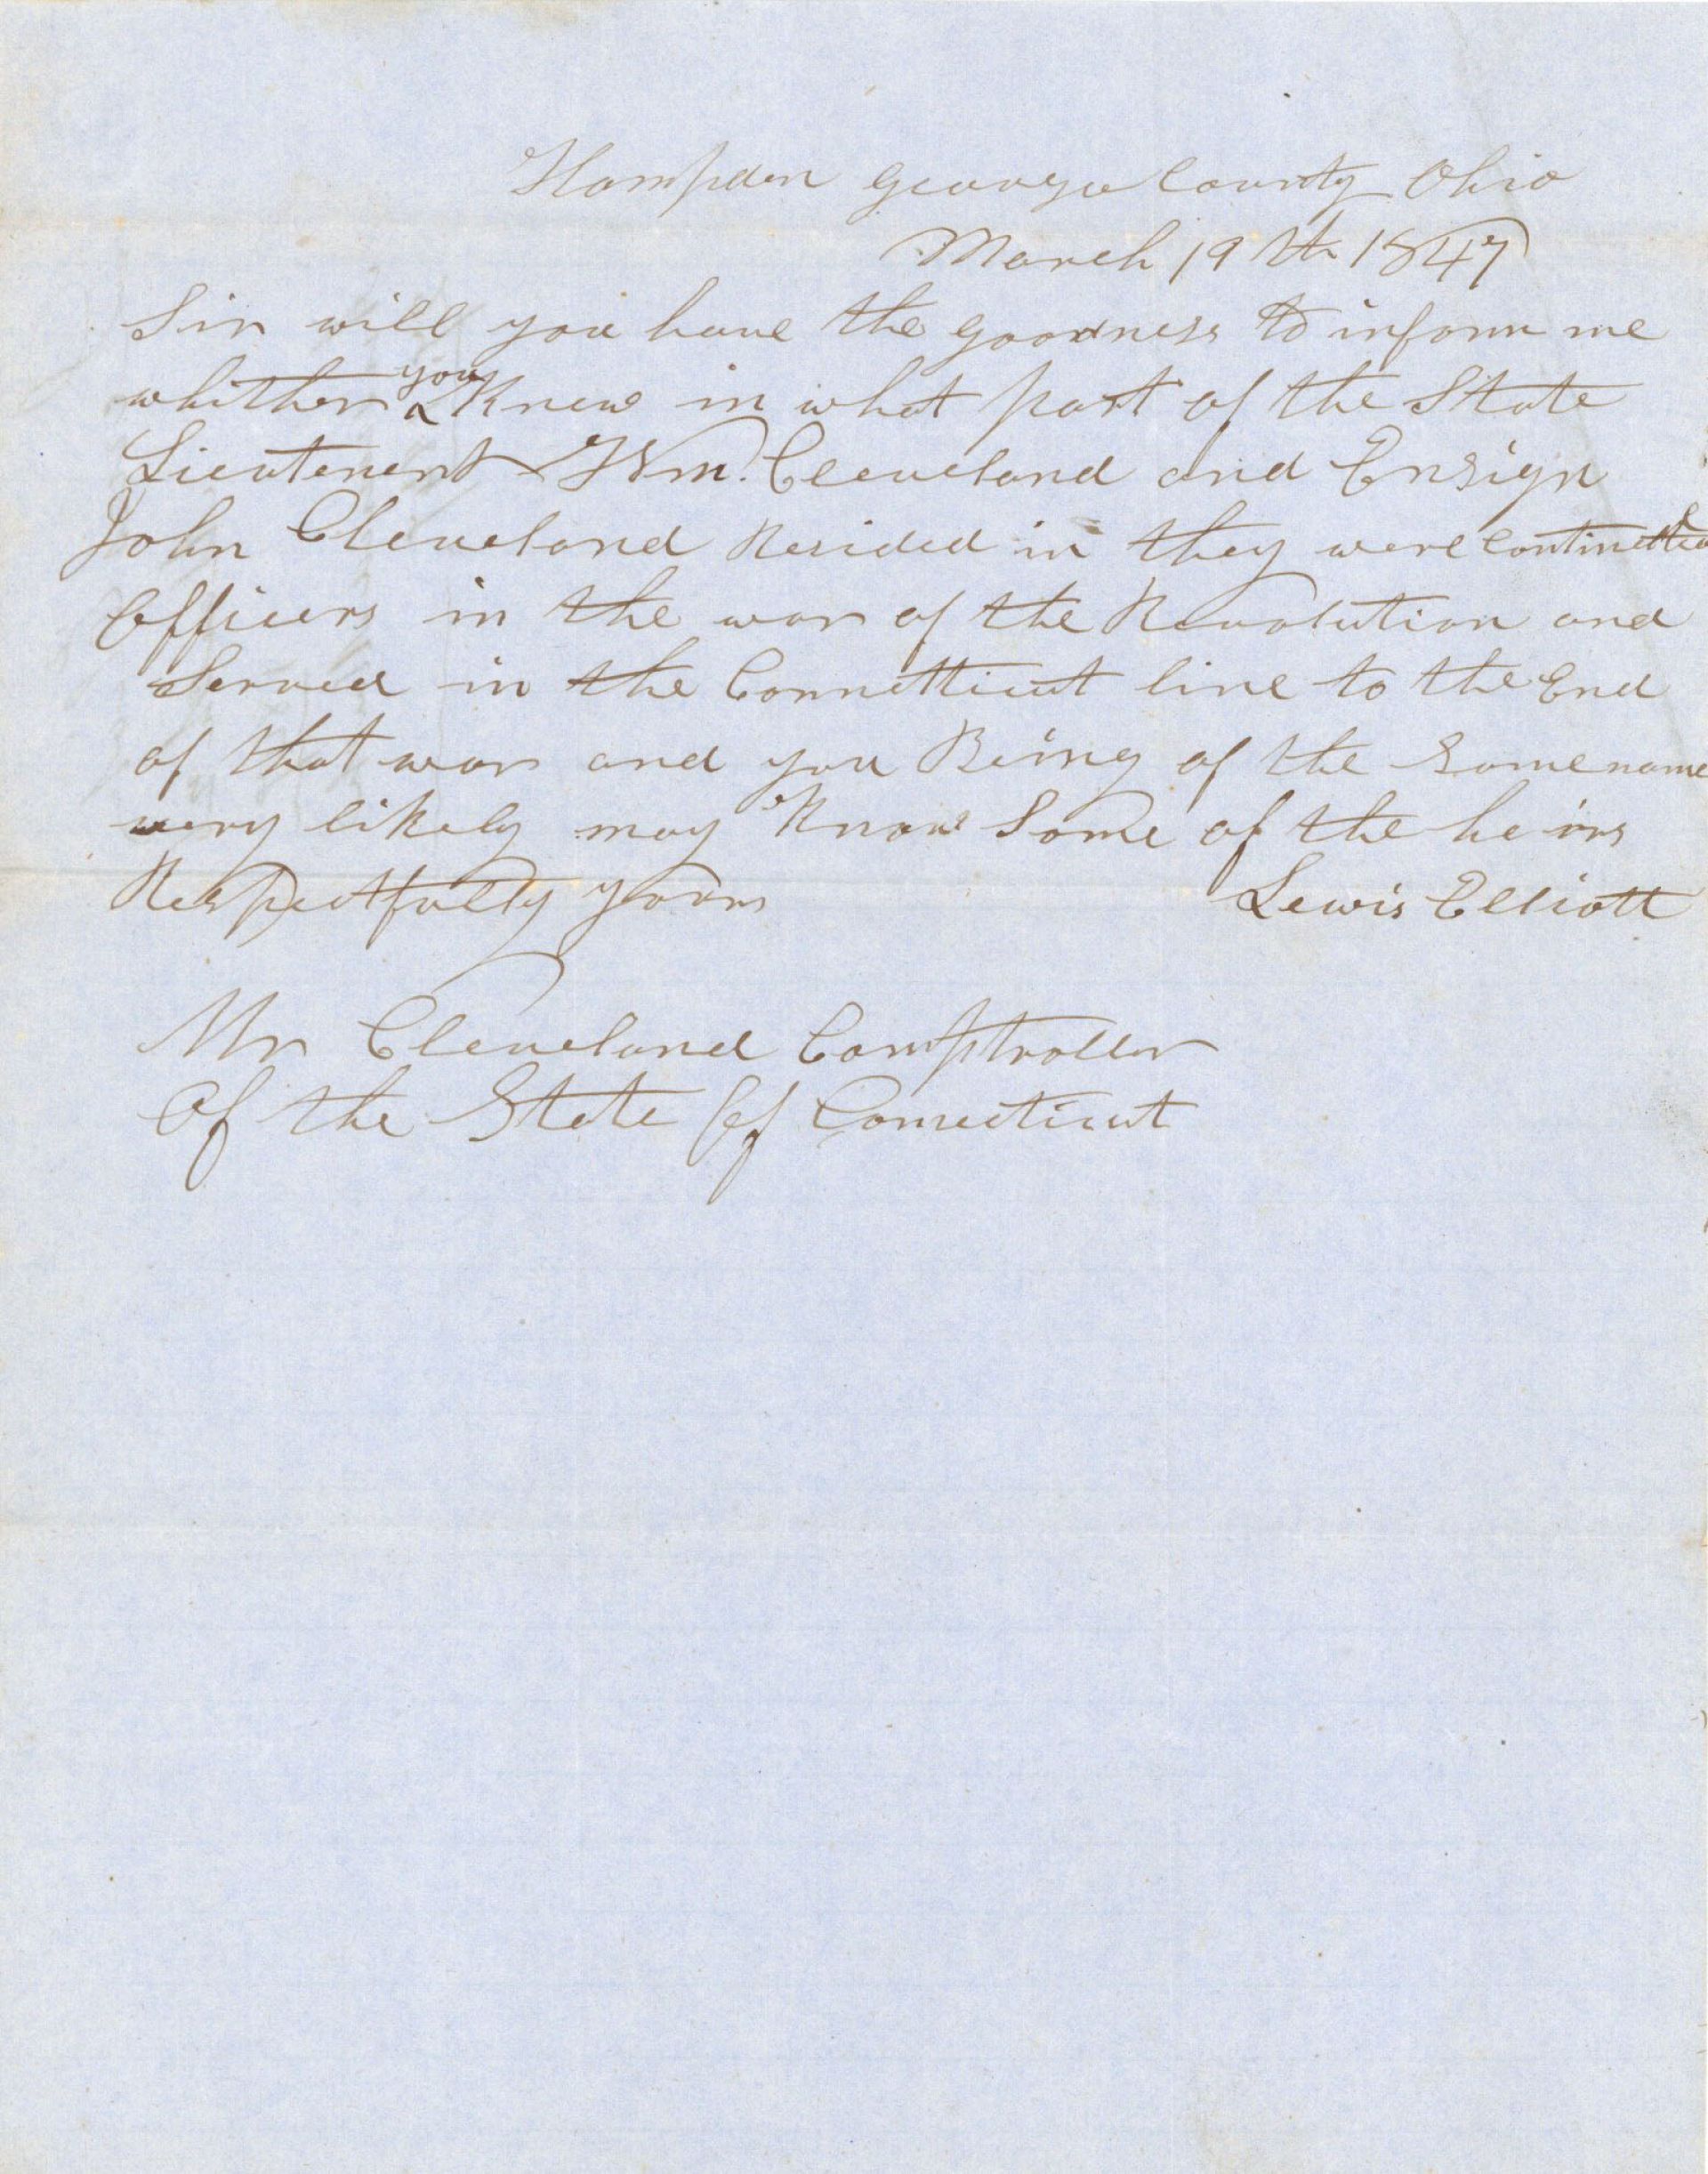 Hampden Geauga County Ohio
March 19th 1847
Sir will you have the goodness to inform me
whither you Knew in what part of the State
Lieutenent Wm. Cleveland and Ensign
John Cleveland Resided in they were
Officers in the war of the Revolution and
Served in the Connetticut line to the End
of that war and you Being of the Same name
very likely may Know Some of the heirs
Respectfully yours Lewis Elliott
Mr Cleveland Comptroller
Of the State Of Connecticut